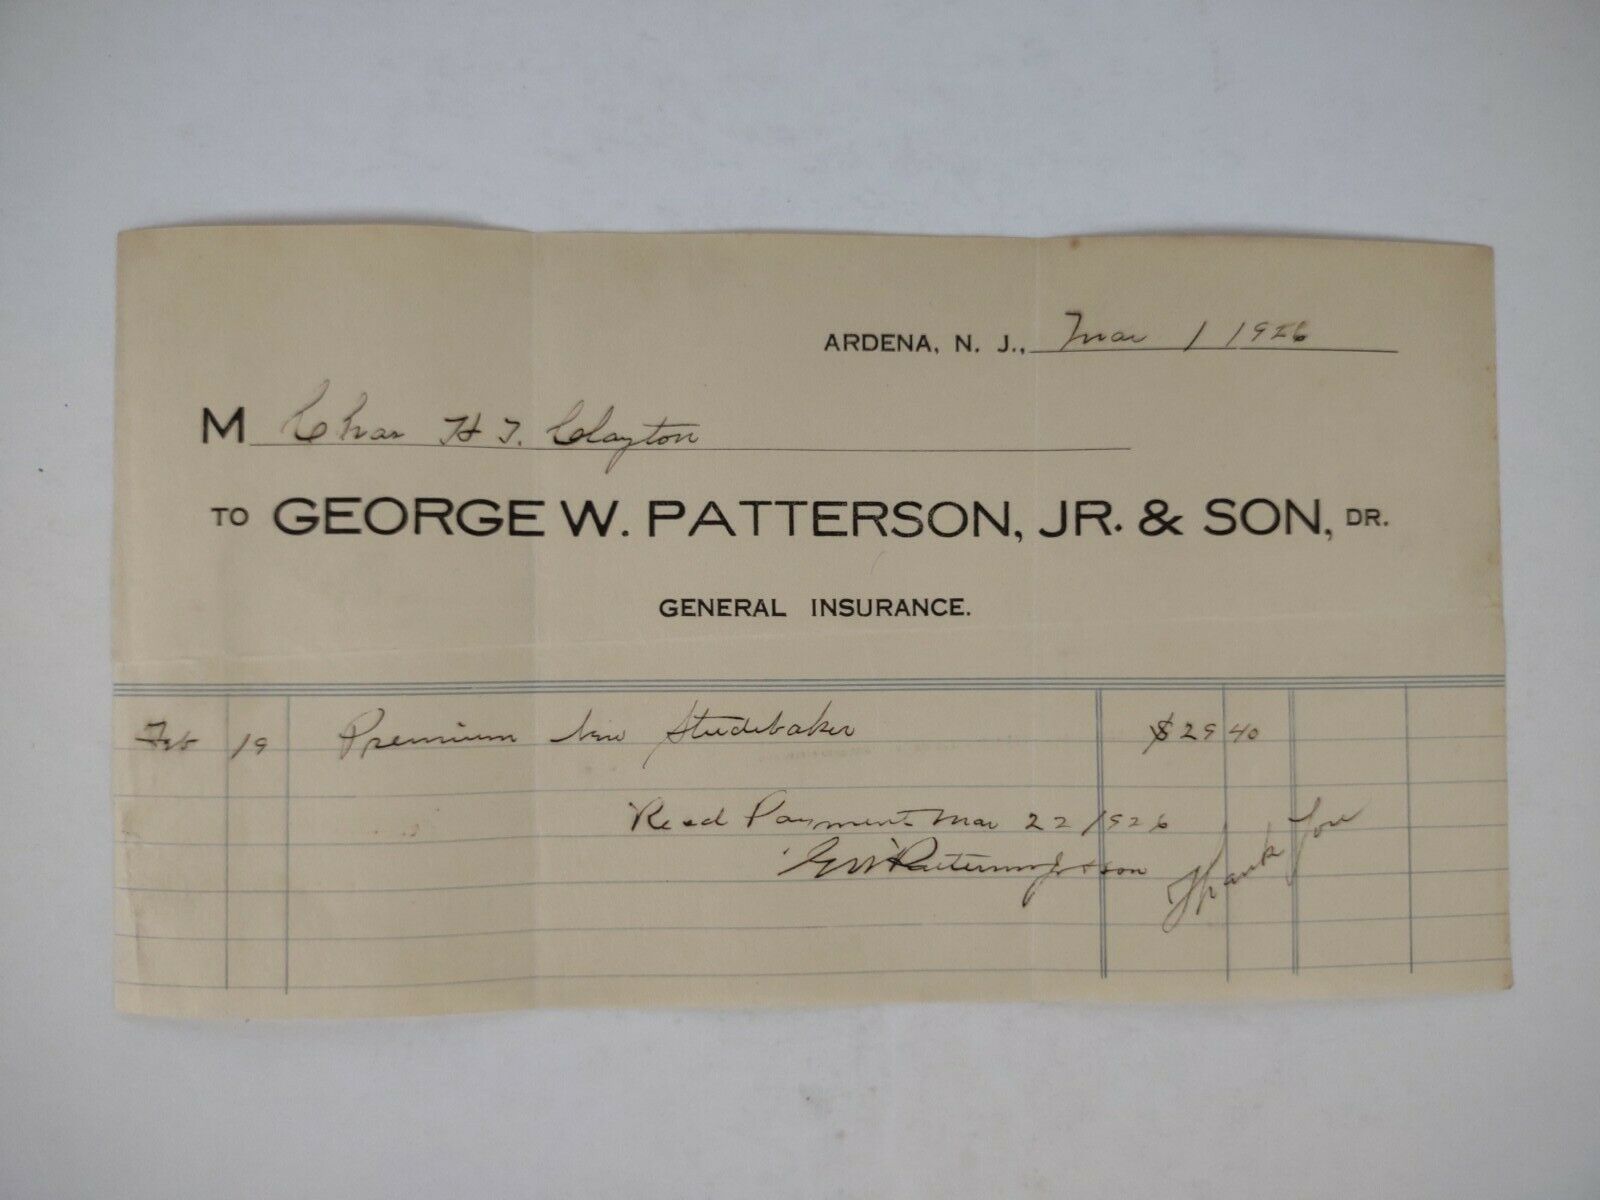 ARDENA, N. J., Mar 1 1926
M Chas H T. Clayton
TO GEORGE W. PATTERSON, JR. & SON, DR.
GENERAL INSURANCE.
Feb 19 Premium New Studebaker $29 40
Recd Payment Mar 22 1926
GW Patterson Jr & Son
Thank You